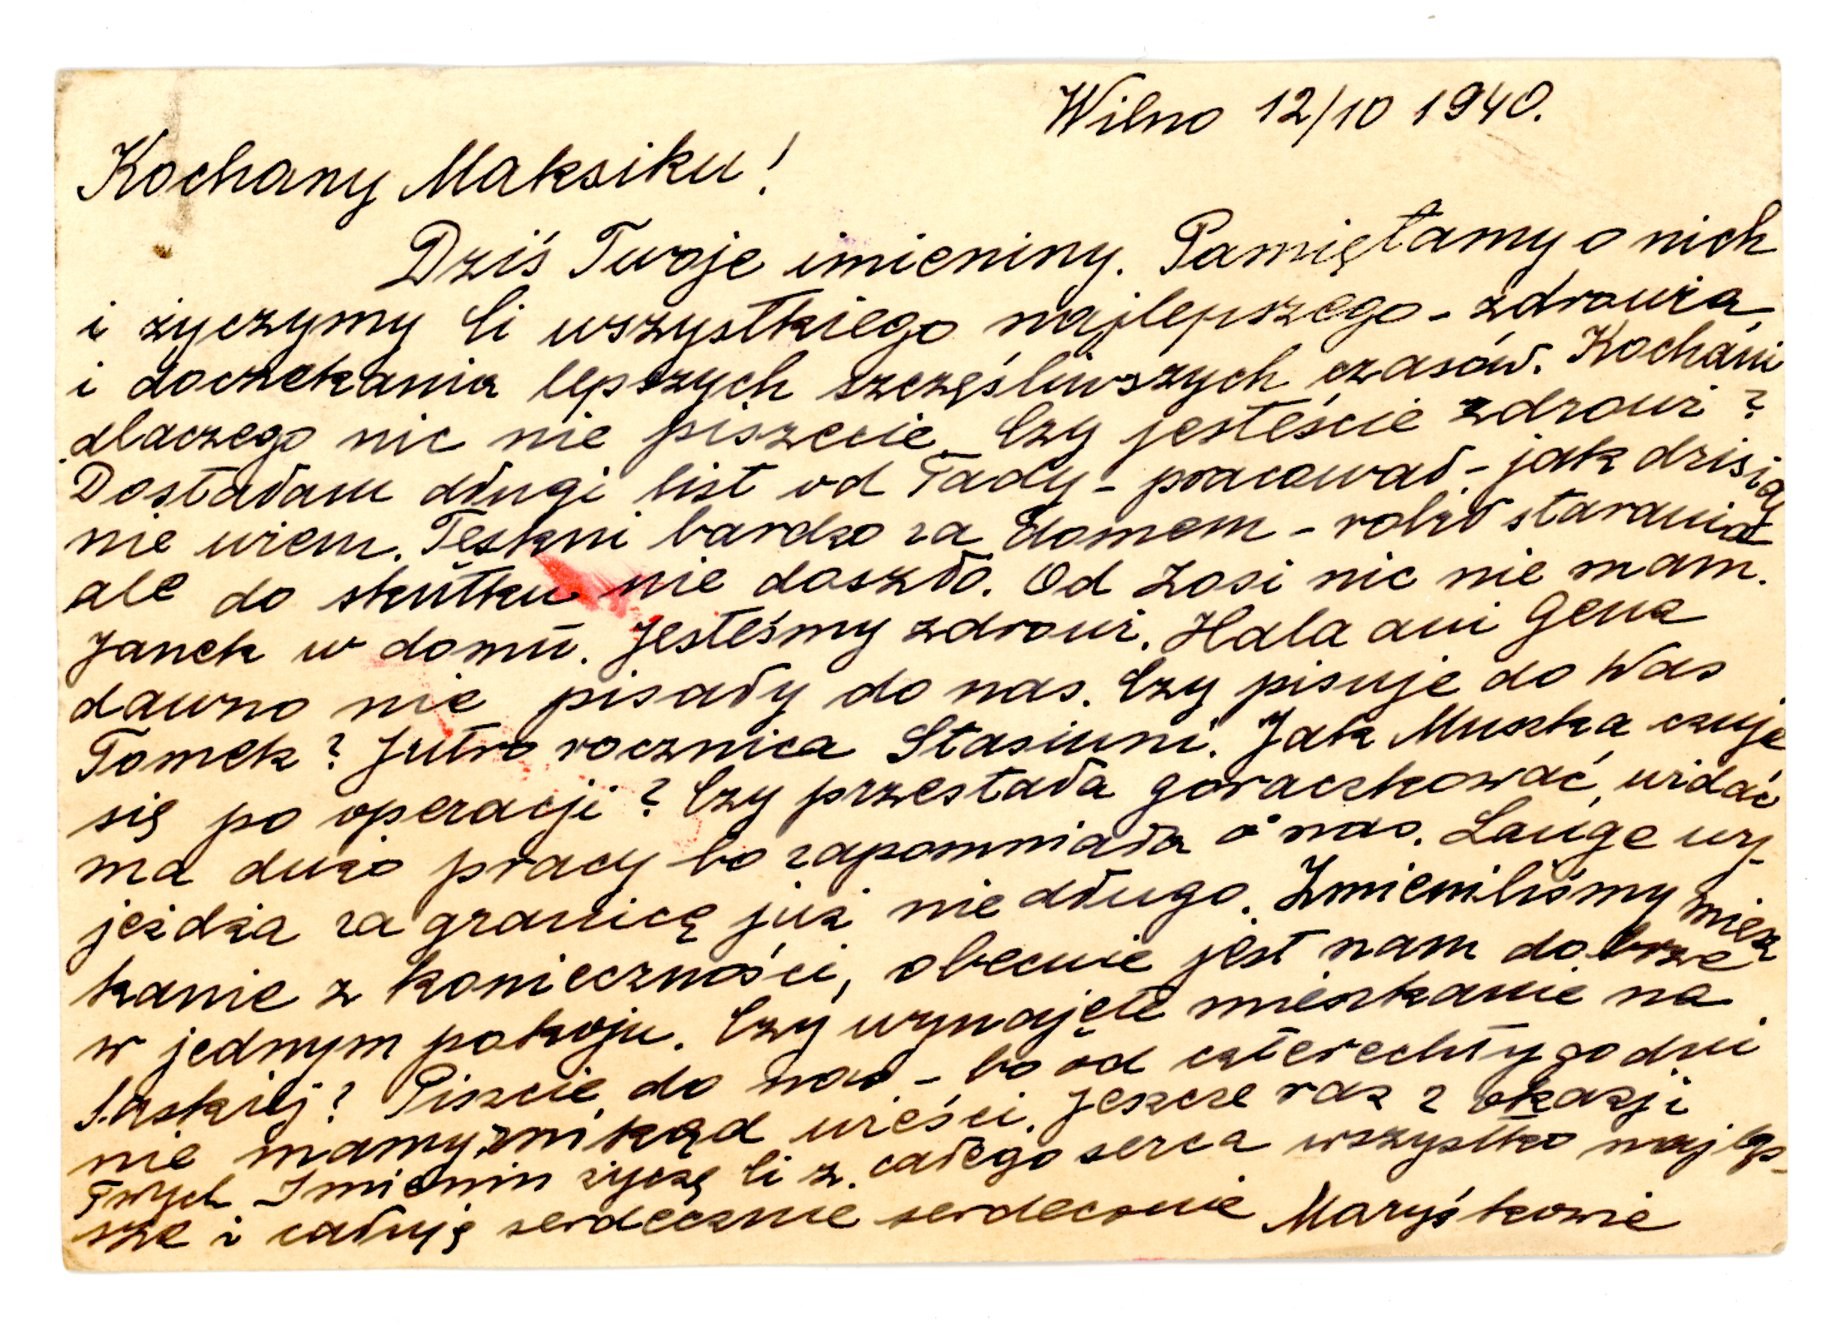 Wilno 12/10 1940.
Kochany Maksiku!
Dziś Twoje imieniny. Pamiętamy o nich
i życzymy Ci wszystkiego najlepszego - zdrowia
i doczekania lepszych szczęśliwszych czasów. Kochani
dlaczego nic nie piszecie. Czy jesteście zdrowi?
Dostałam długi list od Tady - pracował - jak dzisiaj
nie wiem. Tęskni bardzo za domem - robił starania
ale do skutku nie doszło. Od Zosi nic nie mam.
Janek w domu. Jesteśmy zdrowi. Hala ani Genz
dawno nie pisały do nas. Czy pisuje do Was
Tomek? Jutro rocznica Stasiuni. Jak Muszka czuje
się po operacji? Czy przestała gorączkować, widać
ma dużo pracy bo zapomniała o nas. Lange wy-
jeżdża za granicę już nie długo. Zmieniliśmy miesz
kanie z konieczności, obecnie jest nam dobrze
w jednym pokoju. Czy wynajęte mieszkanie na
Saskiej? Piszcie do nas - bo od czterech tygodni
nie mamy znikąd wieści. Jeszcze raz z okazji
Twych Imienin życzę Ci z całego serca wszystko najlep-
sze i całuję serdecznie serdecznie Maryśkowie